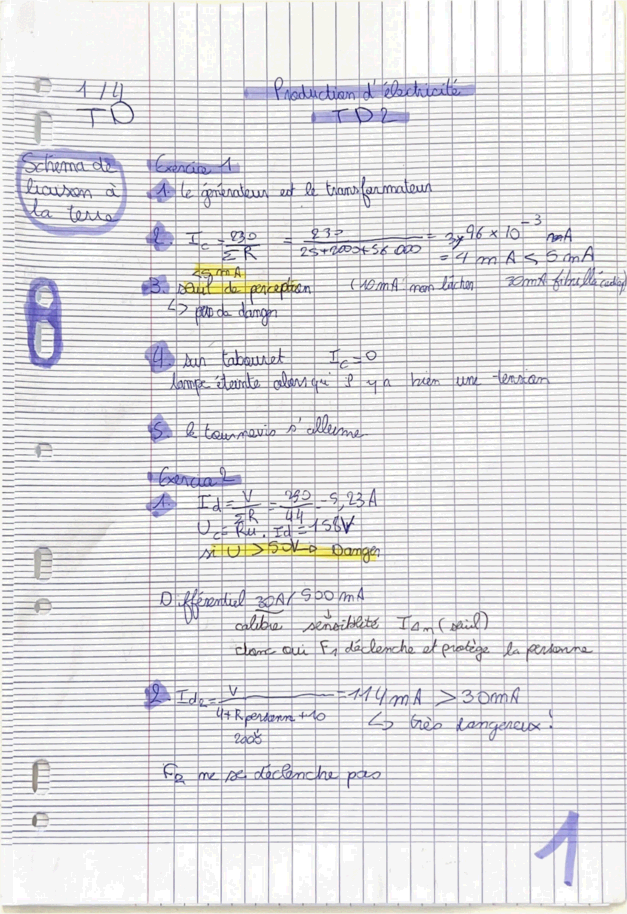 1/4
TD
Production d'électricité
TD2
Schema de
liaison à
la terre
Exercice 1
1. le générateur est le transformateur
2. Ic = 230 / ΣR = 230 / 25+2000+56 000 = 3,96 × 10^-3 mA
= 4 mA < 5 mA
<5mA
3. seuil de perception (10mA non lâcher 30mA fibrillé
↳ pas de danger
4. sur tabouret Ic=0
lampe éteinte alors qu'il y a bien une tension
5. le tournevis s'allume
Exercice 2
1. Id = V / ΣR = 230 / 44 = 5,23A
Uc = Ru . Id = 158V
si U > 50V → Danger
Différentiel 30A/500mA
calibre sensibilité IΔn (seuil)
donc oui F1 déclenche et protège la personne
2. Id2 = V / 4+Rpersonn+10 = 114mA > 30mA
↳ très dangereux!
F2 ne se déclenche pas
1